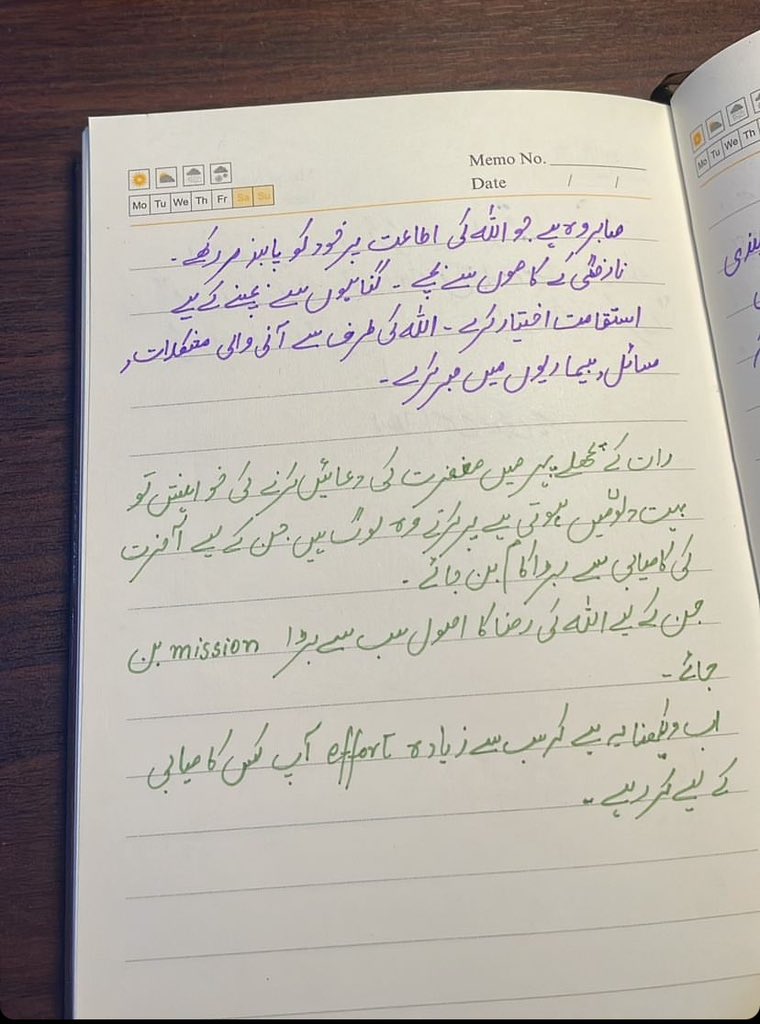 Memo No.
Date / /
Mo Tu We Th Fr Sa Su
صابر وہ ہے جو اللہ کی اطاعت پر خود کو پابند کر رکھے۔
نارضگی کے کاموں سے بچے۔ گناہوں سے بچنے کے لیے
استقامت اختیار کرے۔ اللہ کی طرف سے آنی والی مشکلات،
مسائل، بیماریوں میں صبر کرے۔
رات کے پچھلے پہر میں مغفرت کی دعائیں کرنے کی خواہش تو
بہت دلوں میں ہوتی ہے پر کرتے وہ لوگ ہیں جن کے لیے آخرت
کی کامیابی سے بڑا کام بن جائے۔
جن کے لیے اللہ کی رضا کا اصول سب سے بڑا mission بن
جائے۔
اب دیکھنا یہ ہے کہ سب سے زیادہ effort آپ کس کامیابی
کے لیے کر رہے۔
Mo Tu We Th